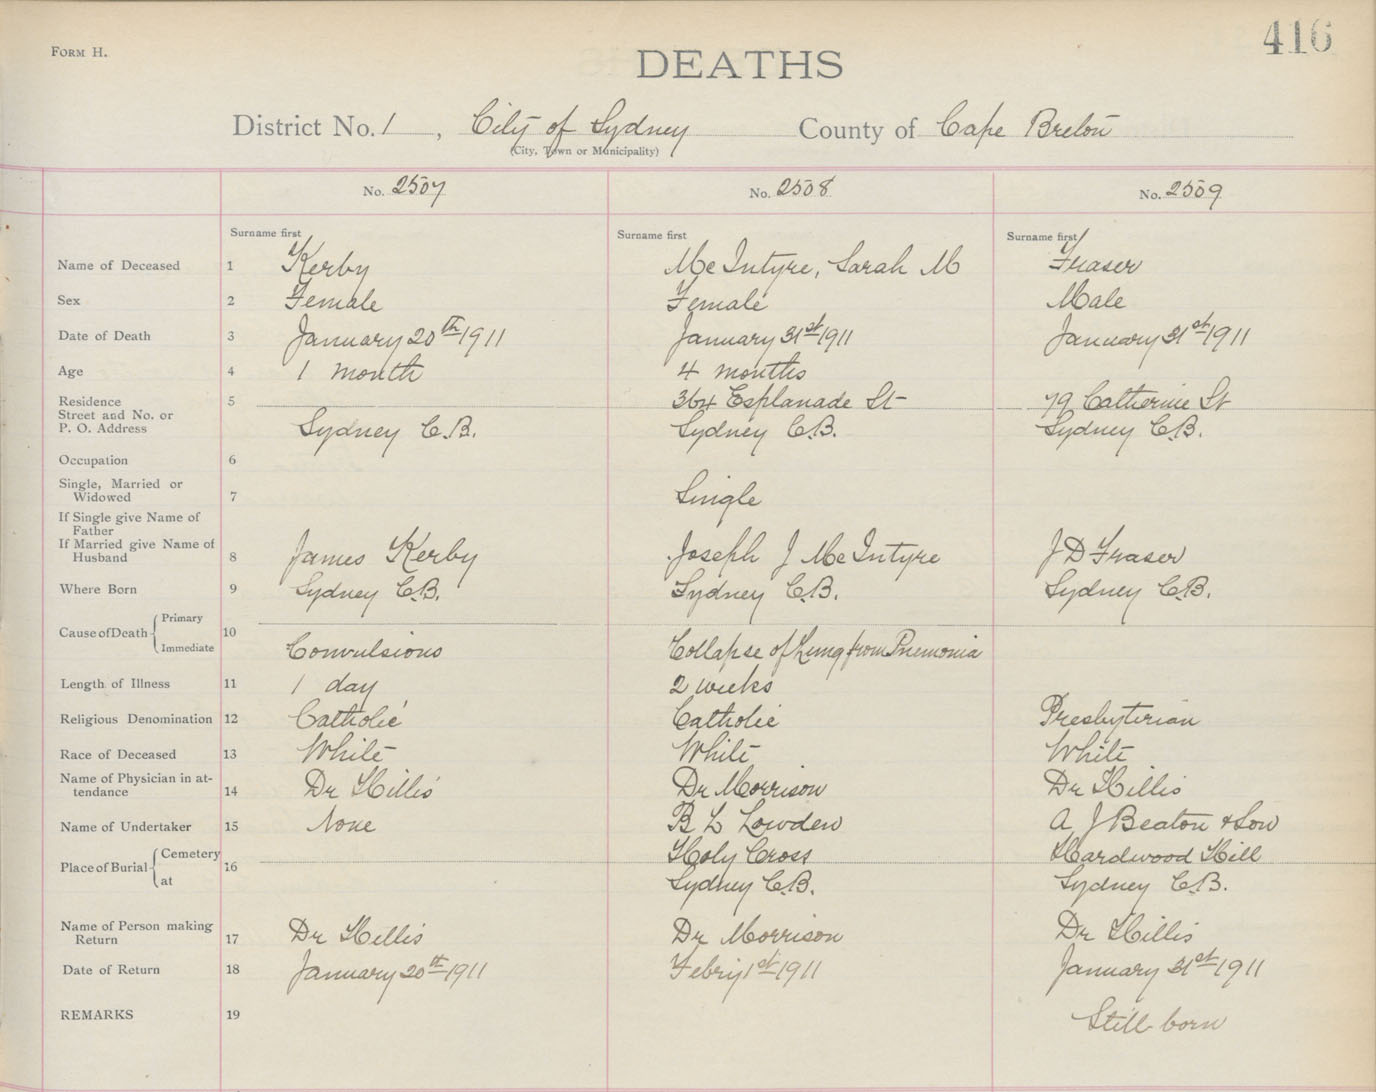 416
FORM H.
DEATHS
District No. 1, City of Sydney County of Cape Breton
(City, Town or Municipality)
No. 2507 No. 2508 No. 2509
Surname first Surname first Surname first
Name of Deceased 1 Kerby McIntyre, Sarah M Fraser
Sex 2 Female Female Male
Date of Death 3 January 20th 1911 January 31st 1911 January 31st 1911
Age 4 1 month 4 months
Residence 5 364 Esplanade St 79 Catherine St
Street and No. or
P. O. Address Sydney C.B. Sydney C.B. Sydney C.B.
Occupation 6
Single, Married or
Widowed 7 Single
If Single give Name of
Father
If Married give Name of
Husband 8 James Kerby Joseph J McIntyre J D Fraser
Where Born 9 Sydney C.B. Sydney C.B. Sydney C.B.
Cause of Death Primary 10
Immediate Convulsions Collapse of Lung from Pnemonia
Length of Illness 11 1 day 2 weeks
Religious Denomination 12 Catholic Catholic Presbyterian
Race of Deceased 13 White White White
Name of Physician in at-
tendance 14 Dr Hillis Dr Morrison Dr Hillis
Name of Undertaker 15 None B L Lowden A J Beaton & Son
Place of Burial Cemetery 16 Holy Cross Hardwood Hill
at Sydney C.B. Sydney C.B.
Name of Person making
Return 17 Dr Hillis Dr Morrison Dr Hillis
Date of Return 18 January 20th 1911 Febry 1st 1911 January 31st 1911
REMARKS 19 Still born